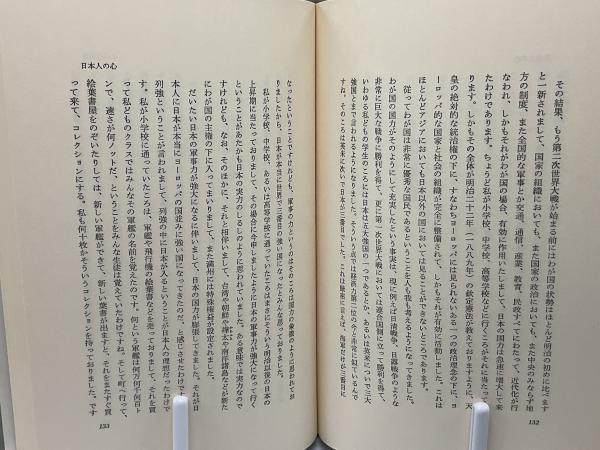 その結果、もう第二次世界大戦が始まる前にはわが国の状勢はほとんど明治の初めに比べます
と一新されまして、国家の組織においても、また国家の政治においても、また中央のみならず地
方の制度、また全国的な軍事とか交通、通信、産業、教育、民政すべてにわたって、近代化が行
なわれ、しかもそれがわが国の場合、有効に作用いたしまして、日本の国力は急速に増大して来
たわけであります。ちょうど私が小学校、中学校、高等学校などに行くころがそれに当たって
ります。しかもその全体が明治二十二年(一八八九年)の欽定憲法が教えておりますように、天
皇の絶対的な統治権の下に、すなわちヨーロッパには見られないある一つの政治理念の下に、ヨ
ーロッパ的な国家と社会の組織が完全に整備されて、しかもそれが有効に活動しました。これは
ほとんどアジアにおいても日本以外の国においては見ることができないところであります。
従ってわが国は非常に優秀な国民であるということを人も我も考えるようになってきました。
わが国の国力がそのようにして充実したという事実は、現に例えば日清戦争、日露戦争のような
非常に巨大な戦争に勝利を得て、更に第一次世界大戦においては連合国側に立って勝利を得て、
いわゆる私どもの学生のころには日本は五大強国の一つであるとか、あるいは英米について三大
強国とまで言われるようになりました。そういう点では経済力第二位の今と非常に似ているんで
すね。そのころは英米に次いで日本が三番目でした。これは厳密に言えば、海軍だけが三番目に
132
日本人の心
なったということですけれども、軍事の力というのはそのころは国力の象徴のように思われてお
りましたから、日本が本当に世界で三番目に強い国になったとみんな思っておりました。
私が小学校、中学校、あるいは高等学校に通っていたころはまさにそういう明治以後の日本の
上昇期に当たっておりまして、その場合に今申しましたように日本の軍事力が強大になって行く
ということがあたかも日本の実力のしるしのように思われていました。ある意味では実力なので
すけれども、なお、そのほかに、それと相伴いまして、台湾や朝鮮や樺太や南洋諸島などが新た
にわが国の主権の下に入ってまいりまして、また満州には特殊権益が設定されました。
だいたい日本の軍事力が強大になるに伴いまして、日本の国力が膨脹してきました。それが日
本人に日本が本当にヨーロッパの国並みに強い国になってきたのだ、と感じさせたわけです
列強ということが言われまして、列強の中に日本が入るということが日本人の理想だったわけで
す。私が小学校に通っていたころは、軍艦や飛行機の絵葉書などを売っておりまして、それを買
って私どものクラスではみんなその軍艦の名前を覚えたのです。何という軍艦は何万何千何百ト
ンで、速さが何ノットだ、ということをみんな生徒は覚えていたわけですね。そして町へ行って、
絵葉書屋をのぞいたりしては、新しい軍艦ができて、新しい葉書が出ますと、それをまたすぐ買
って来て、コレクションにする。私も何十枚かそういうコレクションを持っておりました。です
133